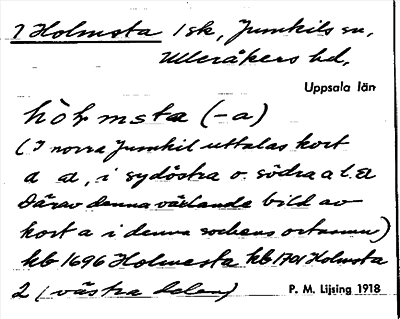 7 Holmsta 1 sk, Jumkils sn,
Ulleråkers hd,
Uppsala län
hòlmsta (-a)
(I norra Jumkil uttalas kort
a a, i sydöstra o. södra a l. a
Därav denna växlande bild av
kort a i denna sockens ortnamn)
kb 1696 Holmesta kb 1701 Holmsta
2 (västra delen)
P. M. Lijsing 1918